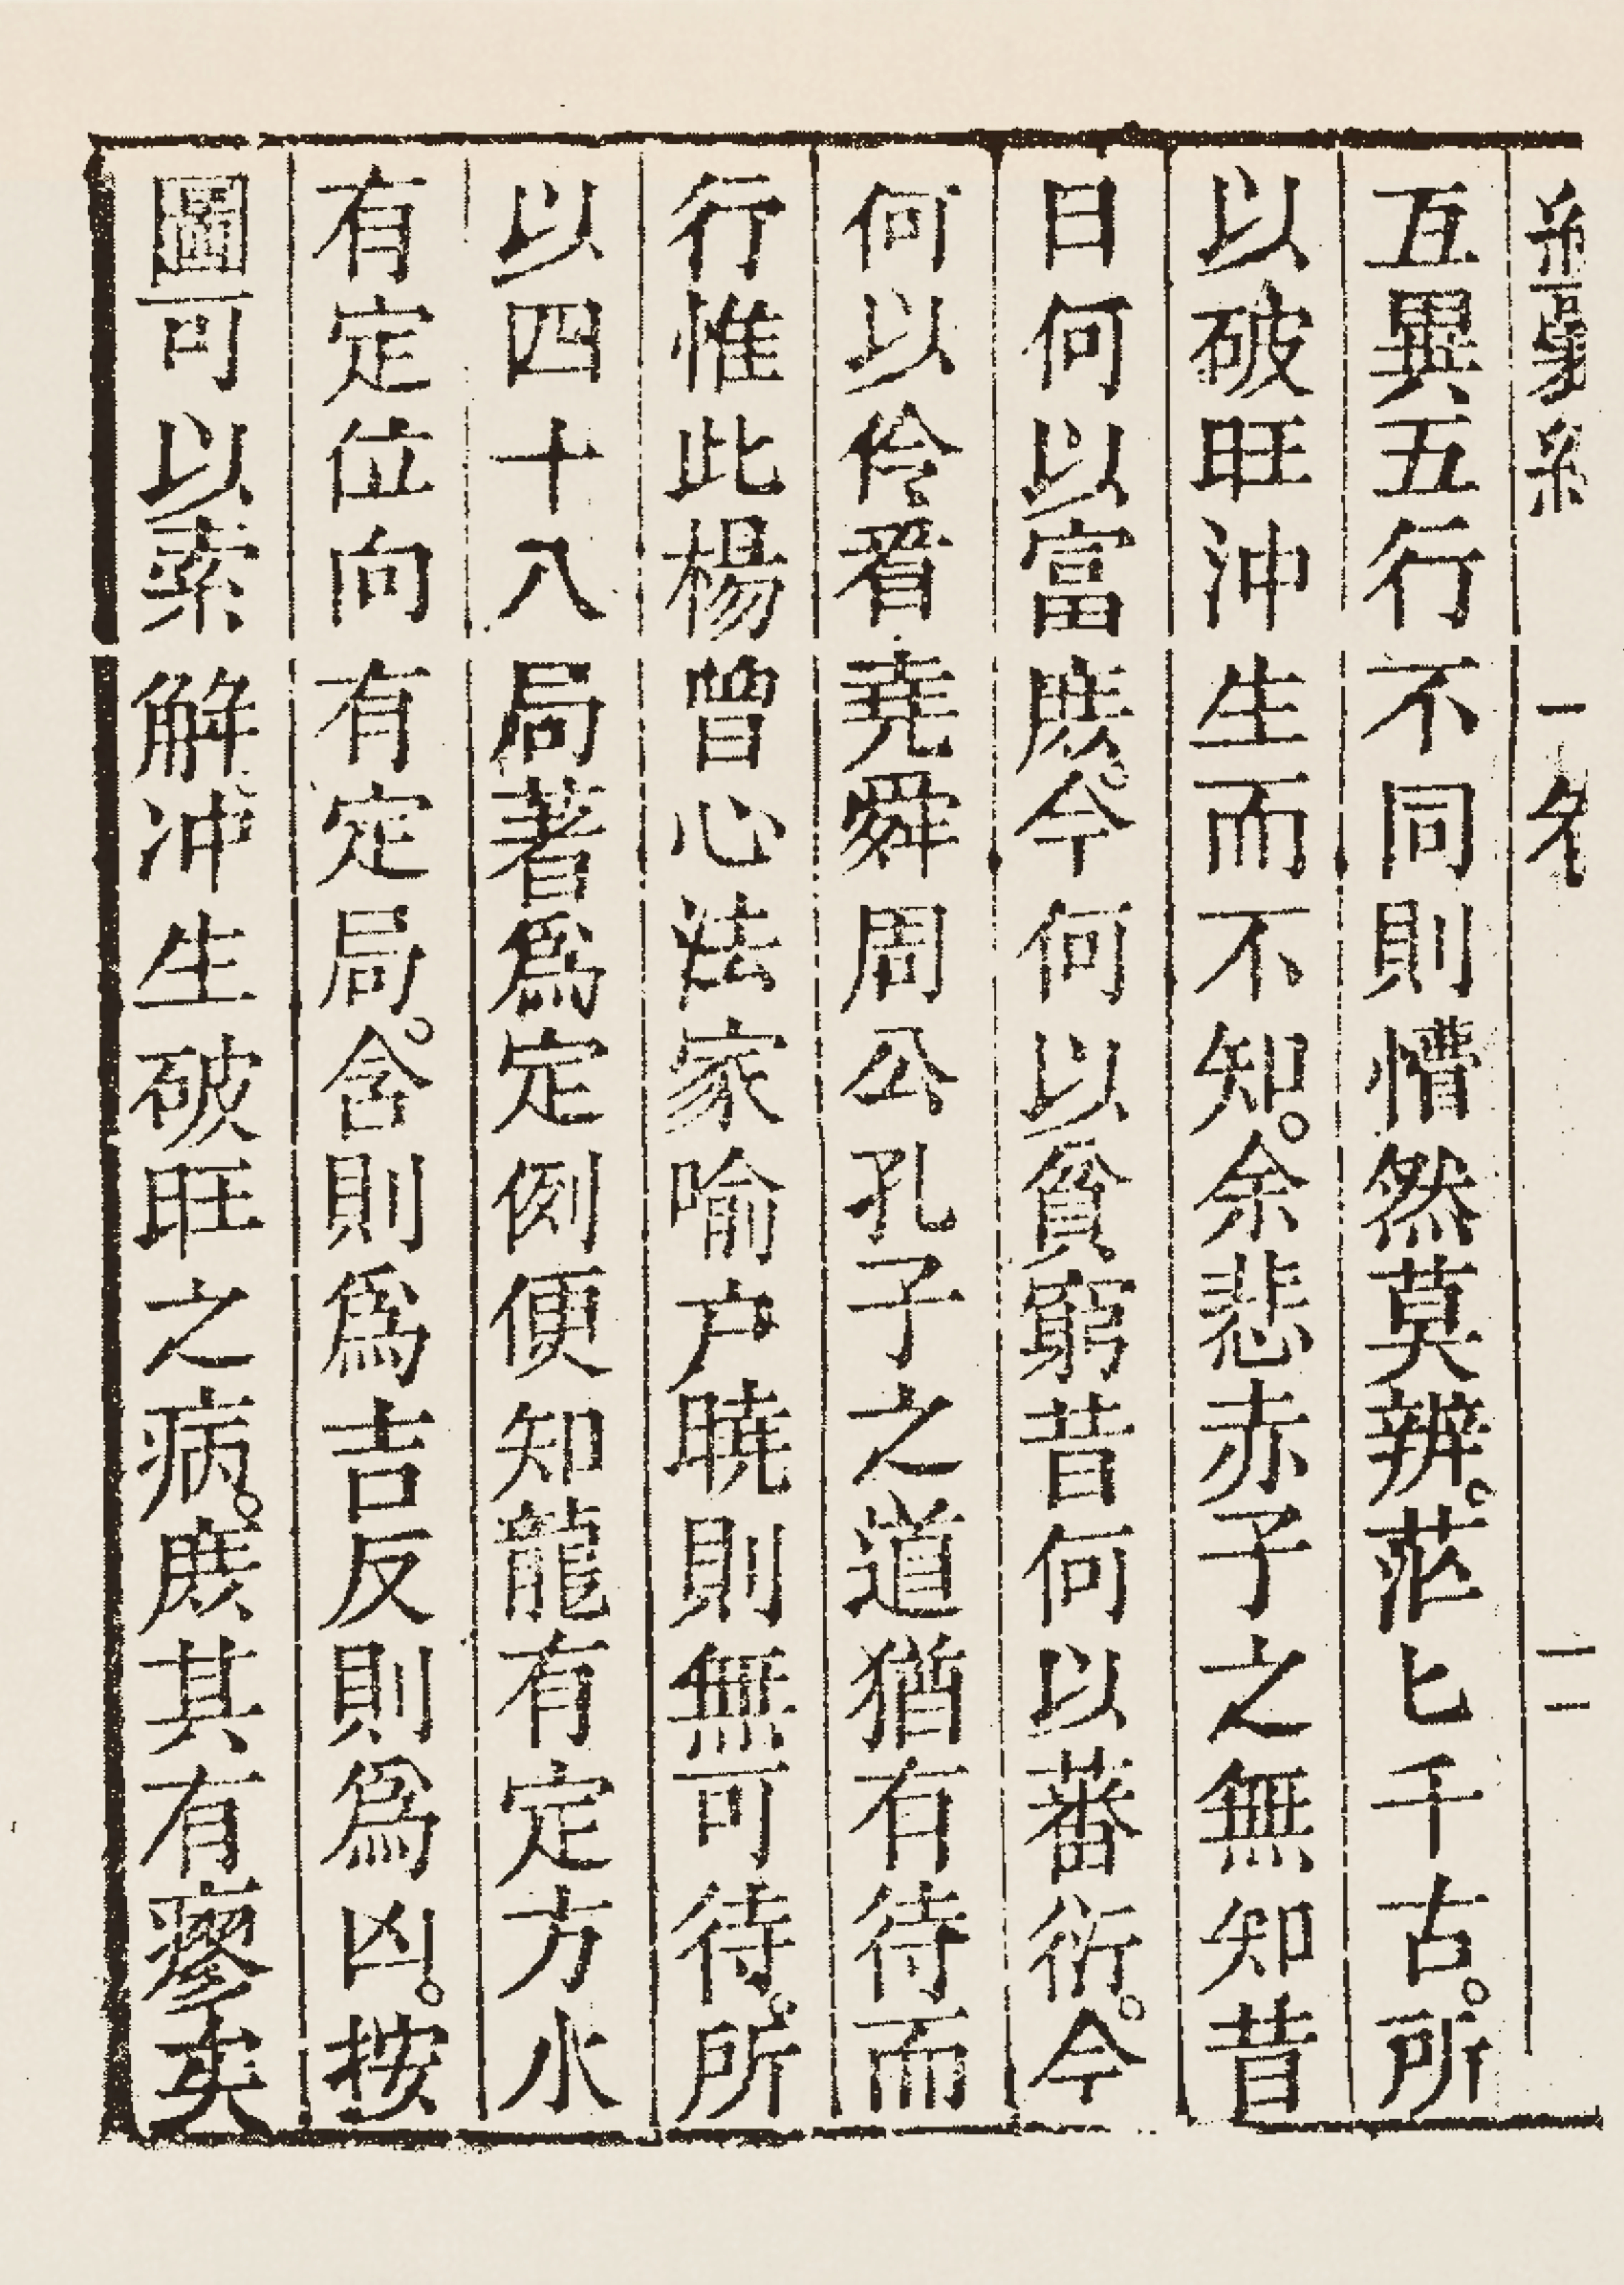 互異五行不同則懵然莫辨。茫匕千古。所
以破旺沖生而不知。余悲赤子之無知昔
日何以富庶。今何以貧窮昔何以蕃衍。今
何以伶看堯舜周公孔子之道猶有待而
行惟此楊曾心法家喻户曉則無可待。所
以四十八局著爲定例便知龍有定方水
有定位向有定局。含則爲吉反則爲凶。按
圖可以索解冲生破旺之病。庶其有瘳矣